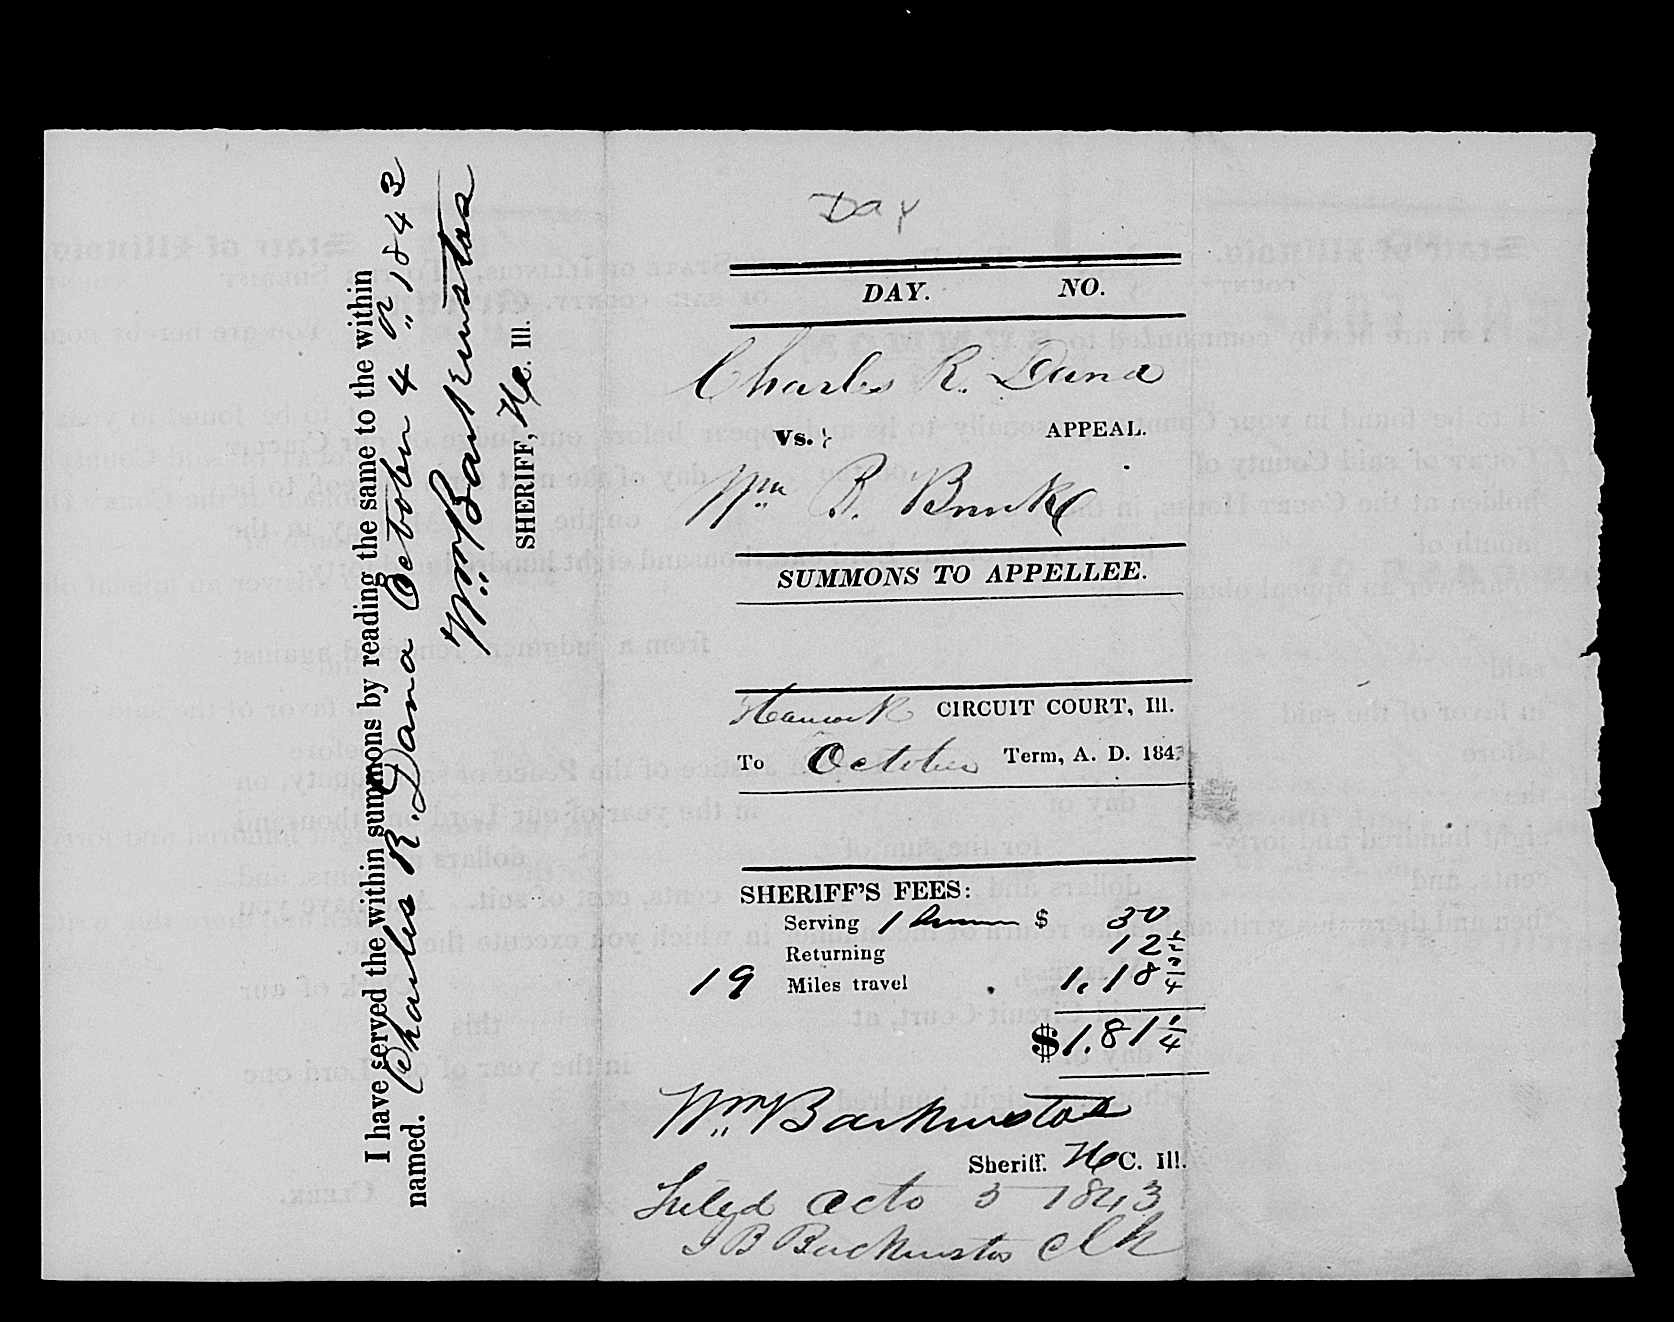 I have served the within summons by reading the same to the within
named. Charles R. Dana October 4th 1843
Wm Backenstos
SHERIFF, H C. Ill.
Day
DAY. NO.
Charles R. Dana
vs. APPEAL.
Wm B.
SUMMONS TO APPELLEE.
Hancock CIRCUIT COURT, Ill.
To October Term, A. D. 1843
SHERIFF'S FEES:
Serving 1 $ 50
Returning 12 1/2
19 Miles travel 1.18 3/4
$1.81 1/4
Wm Backenstos
Sheriff. H C. Ill.
Filed Octo 5 1843
J B Backenstos clk